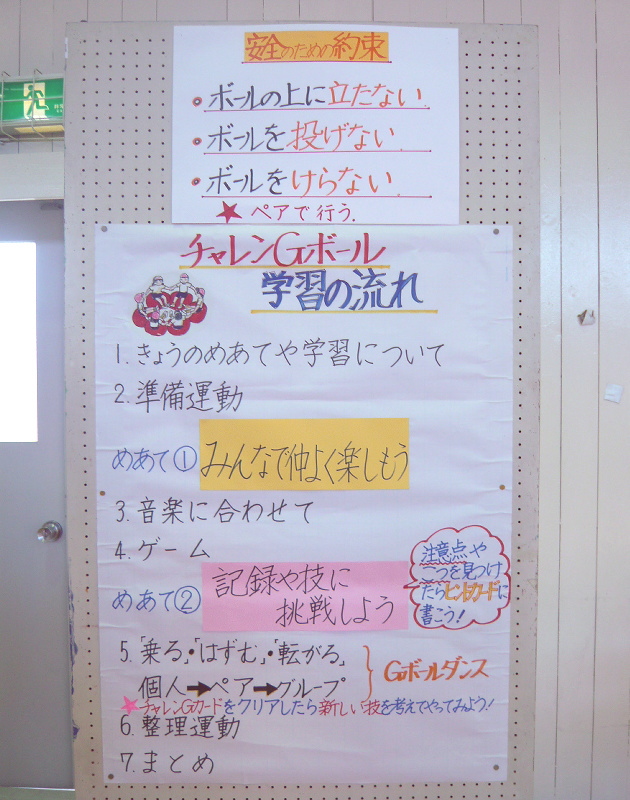 安全のための約束
ボールの上に立たない.
ボールを投げない.
ボールをけらない.
★ペアで行う.
チャレンGボール
学習の流れ
1.きょうのめあてや学習について
2.準備運動
めあて① みんなで仲よく楽しもう
3.音楽に合わせて
4.ゲーム
めあて② 記録や技に
挑戦しよう
注意点や
こつを見つけ
たらヒントカードに
書こう!
5.「乗る」・「はずむ」・「転がる」
個人➡ペア➡グループ
Gボールダンス
★チャレンGカードをクリアしたら新しい技を考えてやってみよう!
6.整理運動
7.まとめ